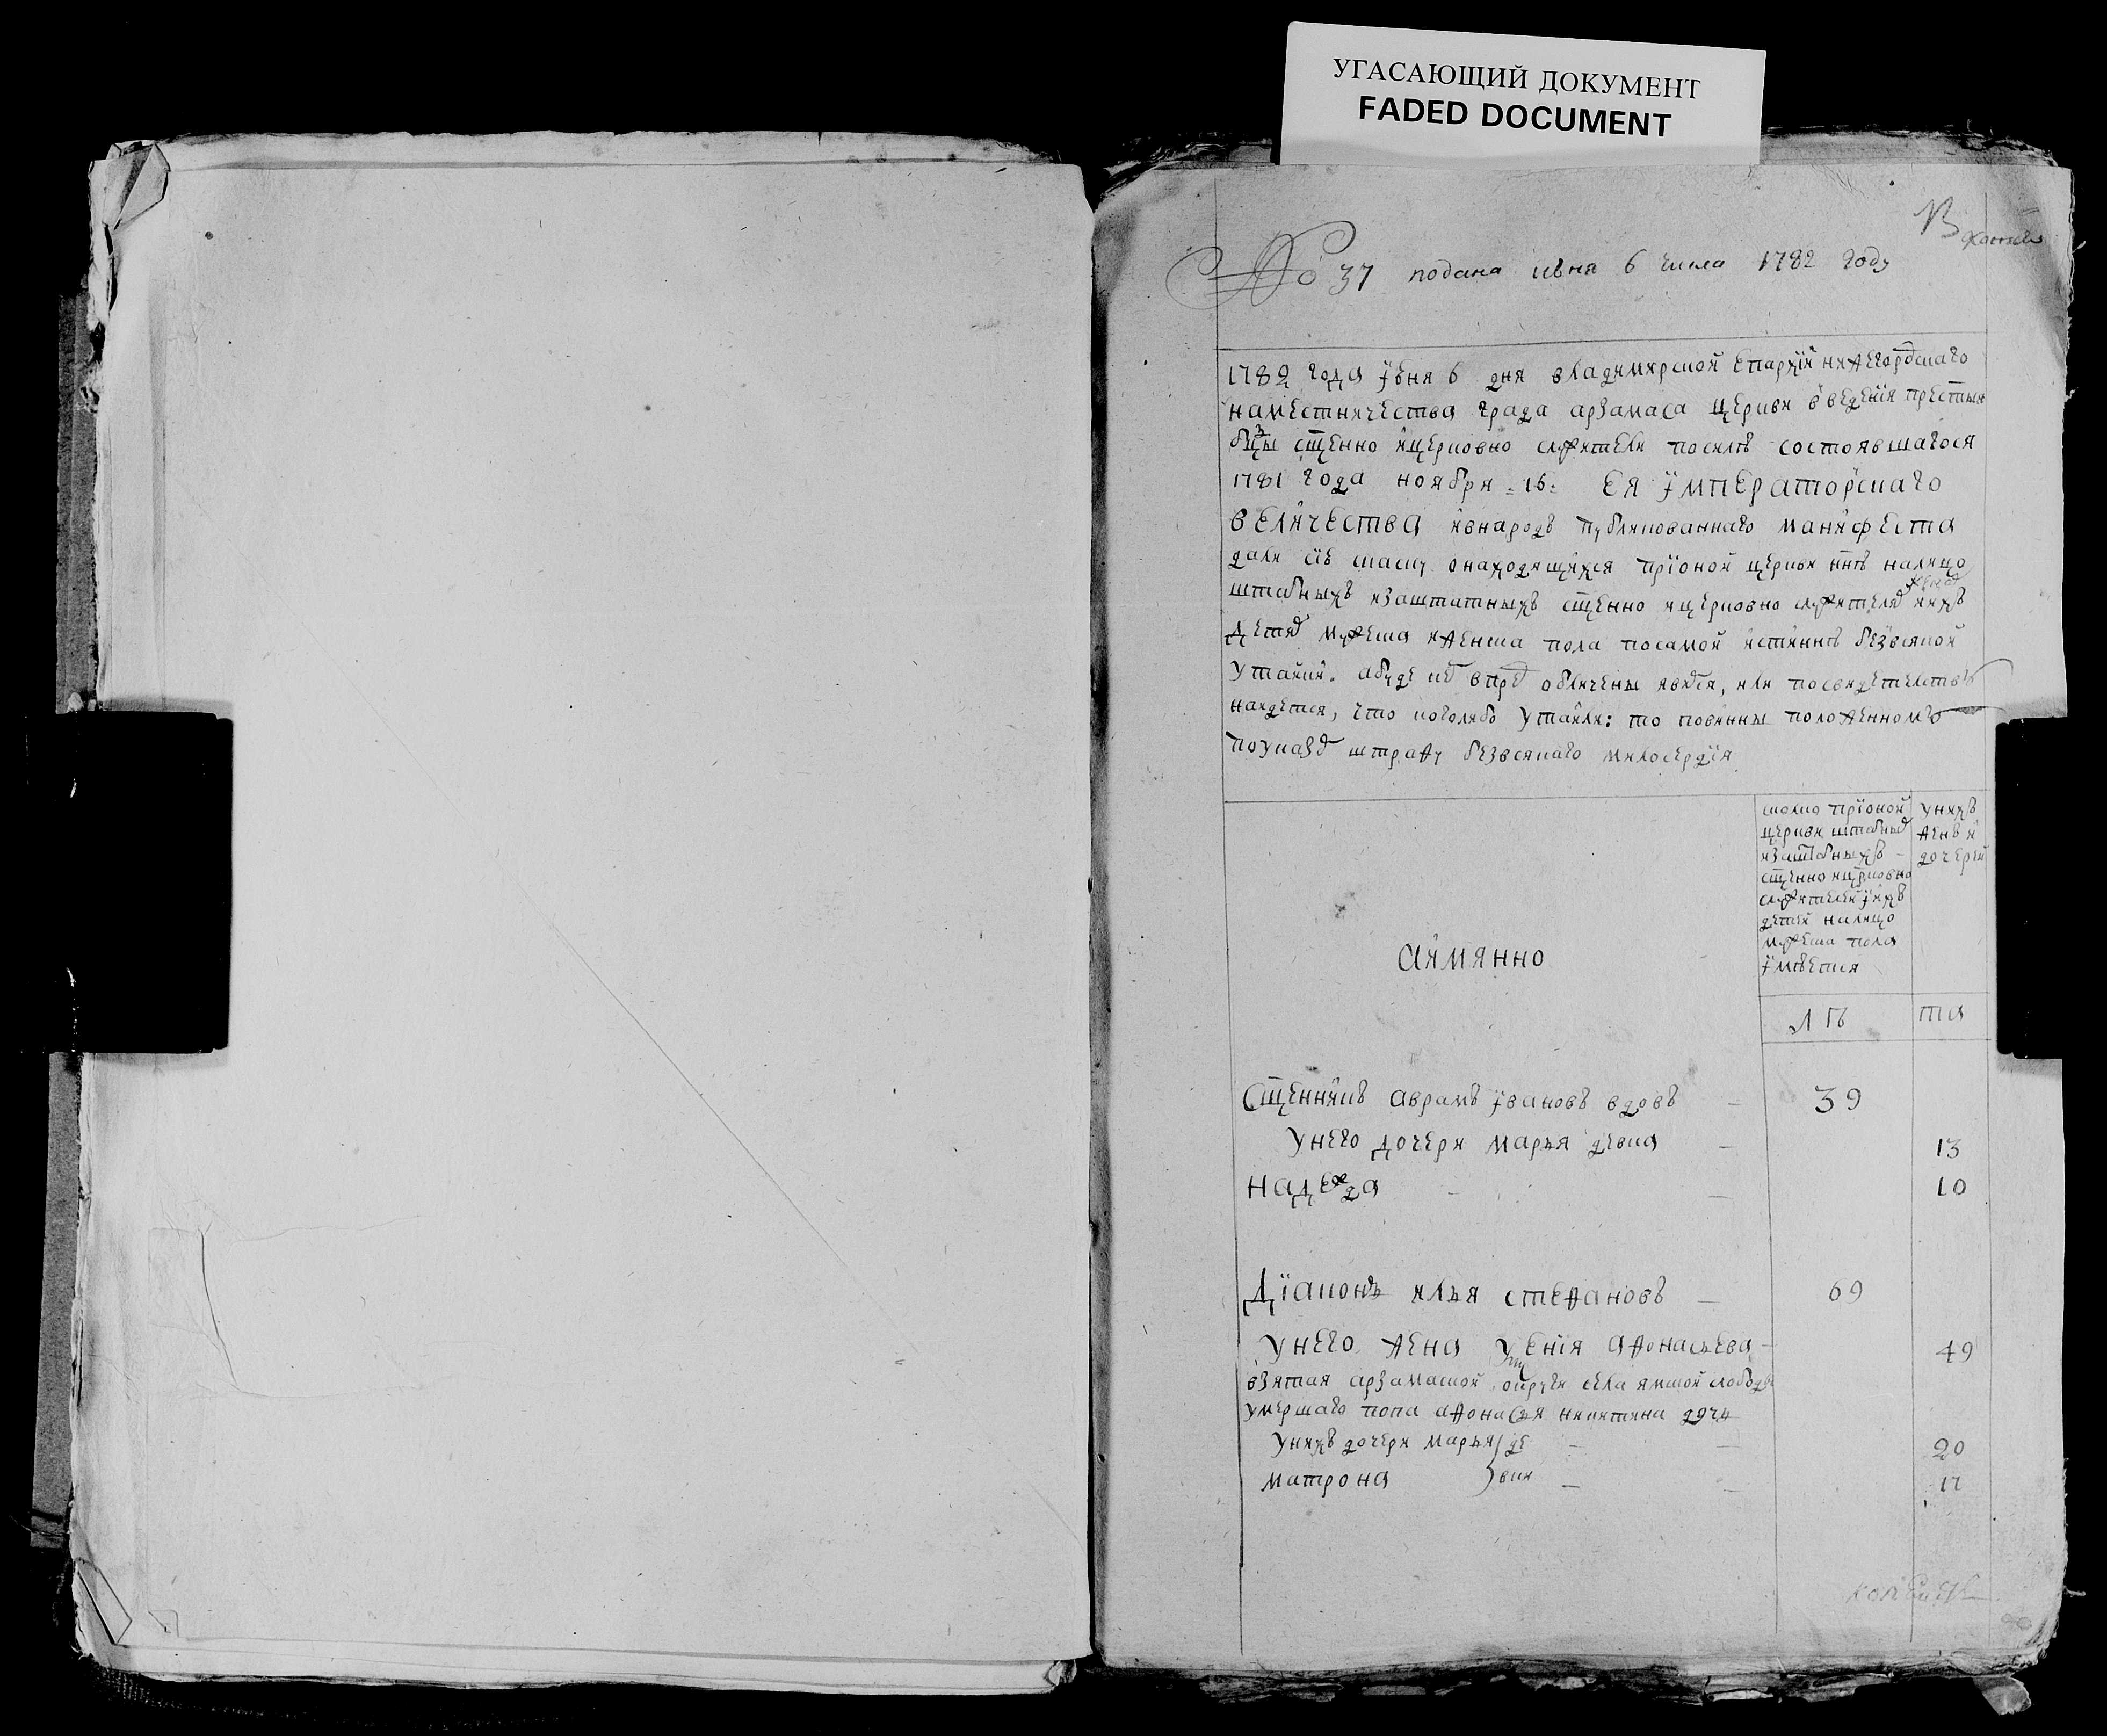 УГАСАЮЩИЙ ДОКУМЕНТ
FADED DOCUMENT
№ 37 подана июня 6 числа 1782 году
1782 года їюня 6 дня владимирской епархїи нижегородскаго
наместничества града арзамаса церкви введенїя престыя
бцы сщенно ицерковно служители посиле состоявшагося
1781 года ноября 16: ея їмператорскаго
величества ивнародъ публикованнаго манифеста
дали сїю скаску онаходящихся приїоной церкви нне налицо
штатныхъ изаштатныхъ сщенно ицерковно служителяхъ женахъ ихъ
детяхъ мужеска иженска пола посамой истинне безвсякой
утайки. абуде кто впредь обличены явятся, или посвидетельству
найдется, что кого либо утаили: то повинны положенному
поуказу штрафу безвсякаго милосердїя
сколко прїоной
церкви штатныхъ
изаштатныхъ
сщенно ицерковно
служителей їихъ
детей налицо
мужеска пола
їмеется
унихъ
женъ и
дочерей
аимянно
ле
та
Сщенникъ аврамъ ївановъ вдовъ 39
унего дочери марья девка 13
надежда 10
Дїаконъ илья стефановъ 69
унего жена афонасьева 49
взятая арзамаской округи села ямской слободы
умершаго попа афонасия никитина дочь
унихъ дочери марья де 20
матрона вки 17